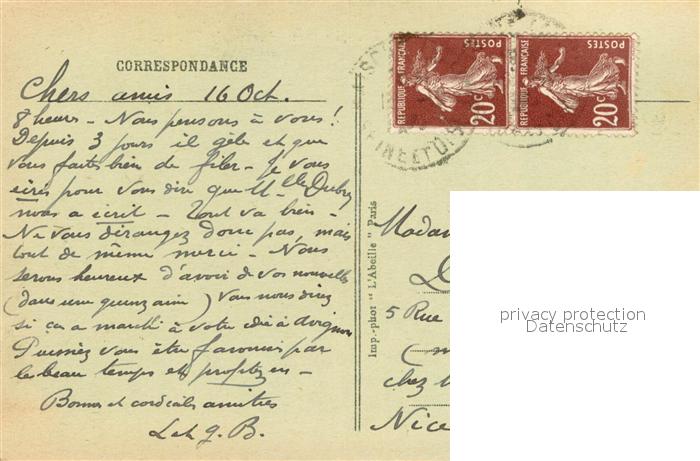 CORRESPONDANCE
Chers amis 16 Oct.
8 heures - Nous pensons à vous !
Depuis 3 jours il gèle et que
vous faites bien de filer - Je vous
écris pour vous dire que Mlle Dubry
nous a écrit - Tout va bien -
Ne vous dérangez donc pas, mais
tout de même merci - Nous
serons heureux d'avoir de vos nouvelles
(dans une quinzaine) Vous nous direz
si ça a marché à votre idée à Avignon
Puissiez vous être favorisés par
le beau temps et profitez en -
Bonnes et cordiales amitiés
L et G. B.
Imp.-phot " L'Abeille " Paris
REPUBLIQUE FRANÇAISE
POSTES
20c
REPUBLIQUE FRANÇAISE
POSTES
20c
SEINE ET OISE
Madam
5 Rue
chez
Nice
privacy protection
Datenschutz